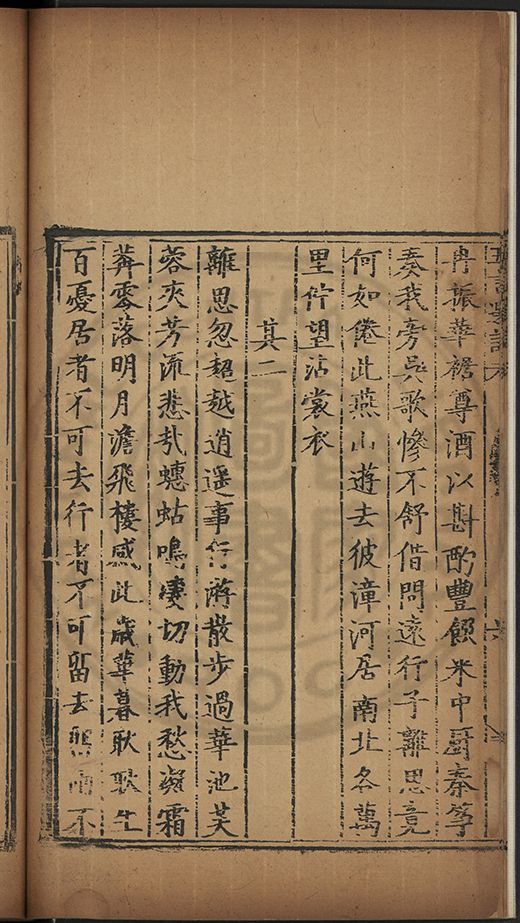 冉振華裾尊酒以斟酌豐饌米中厨秦筝
奏我旁吳歌慘不舒借問遠行子離思竟
何如倦此燕山遊去彼漳河居南北各萬
里佇望沾裳衣
其二
離思忽超越逍遥事行游散步過華池芙
蓉夾芳流悲哉蟪蛄鳴凄切動我愁凝霜
葬零落明月澹飛樓感此歲華暮耿耿生
百憂居者不可去行者不可畱去 不